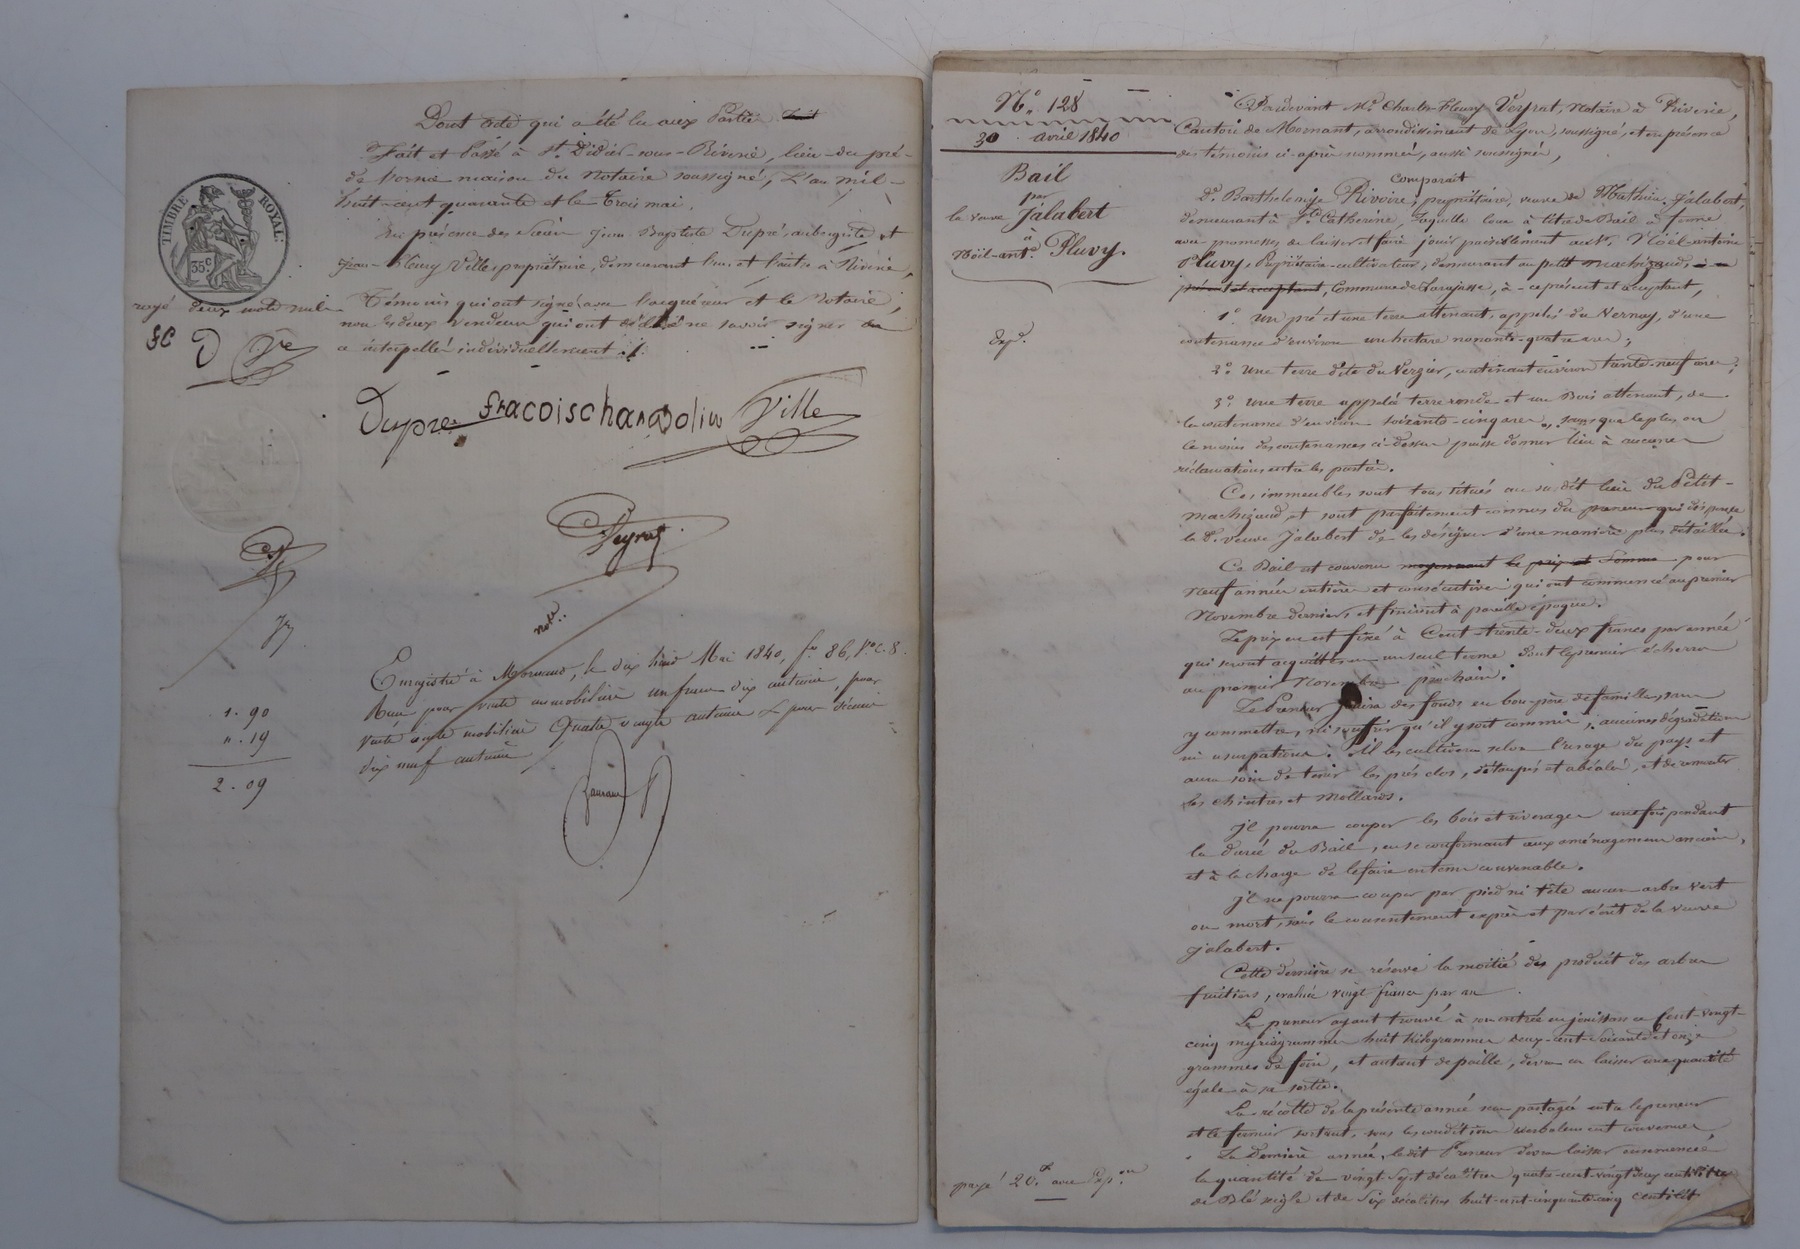 Dont acte qui a été lu aux Parties
Fait et Passé à St. Didier-sous-Riverie, lieu-du-pré-
de maison du Notaire soussigné, L'an mil-
huit-cent quarante et le Trois mai.
En présence des Sieurs Jean Baptiste Dupré, aubergiste et
Jean-Fleury Ville, propriétaire, demeurant l'un et l'autre à Riverie,
Témoins qui ont signé avec l'acquéreur et le Notaire,
non les deux vendeurs qui ont déclaré ne savoir signer
a interpellés individuellement ./.
TIMBRE ROYAL
35 c
rayé deux mots nuls
fC D Ve
Dupre fracoischanadliw Ville
Veyrat
not.
Enregistré à Mornant, le dix huit Mai 1840, fo 86, Vo c. 8.
Reçu pour vente immobilière un franc dix centimes, pour
vente mobilière Quatre vingts centimes & pour décime
dix neuf centimes
1. 90
". 19
2. 09
No. 128
30 avril 1840
Bail
par
la veuve Jalabert
à
Noël-ant.e Pluvy.
Exp.
payé 20.f avec Exp.on
Pardevant Me. Charles-Fleury Veyrat, Notaire à Riverie,
Canton de Mornant, arrondissement de Lyon, soussigné, et en présence
des témoins ci-après nommés, aussi soussignés,
Comparait
De. Barthelemye Rivoire, propriétaire, veuve de Mathieu Jalabert,
demeurant à Ste. Catherine, laquelle loue à titre de Bail à ferme
avec promesses de laisser et faire jouir paisiblement au Sr. Noël-antoine
Pluvy, Propriétaire-cultivateur, demeurant au petit machizaud, à ce
présent et acceptant, Commune de Larajasse, à-ce présent et acceptant,
1o. Un pré et une terre attenant, appelés du Vernay, d'une
contenance d'environ un hectare nonante-quatre ares;
2o. Une terre dite du Verger, contenant environ trente-neuf ares;
3o. Une terre appelée terre ronde et un Bois attenant, de
la contenance d'environ soixante-cinq ares, sans que le plus ou
le moins des contenances ci-dessus puisse donner lieu à aucunes
réclamations entre les parties.
Ces immeubles sont tous situés au su dit lieu du Petit-
machizaud, et sont parfaitement connus du preneur qui dispense
la De. veuve Jalabert de les désigner d'une manière plus détaillée.
Ce Bail est convenu moyennant le prix et Somme pour
Neuf années entières et consécutives qui ont commencé au premier
Novembre dernier, et finiront à pareille époque.
Le prix en est fixé à Cent-trente-deux francs par année
qui seront acquittés en un seul terme dont le premier écherra
au premier Novembre prochain.
Le Preneur jouira des fonds en bon père de famille, sans
y commettre, ni souffrir qu'il y soit commis, aucunes dégradations
ni usurpations. Il les cultivera selon l'usage du pays et
aura soin de tenir les prés clos, détaupés et abéalés, et de remonter
les chintres et Mollards.
Il pourra couper les bois et riverages une fois pendant
la durée du Bail, en se conformant aux aménagemens anciens,
et à la charge de le faire en tems convenable.
Il ne pourra couper par pied ni tête aucun arbre vert
ou mort, sans le consentement exprès et par écrit de la veuve
Jalabert.
Cette dernière se réserve la moitié des produit des arbres
fruitiers, évaluée vingt francs par an.
Le preneur ayant trouvé à son entrée en jouissance Cent-vingt-
cinq myriagrammes huit kilogrammes deux-cent-soixante et onze
grammes de foin, et autant de paille, devra en laisser une quantité
égale à sa sortie.
La récolte de la présente année sera partagée entre le preneur
et le fermier sortant, sous les conditions verbalement convenues,
La Dernière année, ledit Preneur devra laisser ensemencée
la quantité de vingt sept décalitres quatre-cent-vingt deux centilitres
de Blé seigle et de Six décalitres huit-cent-cinquante-cinq centilit